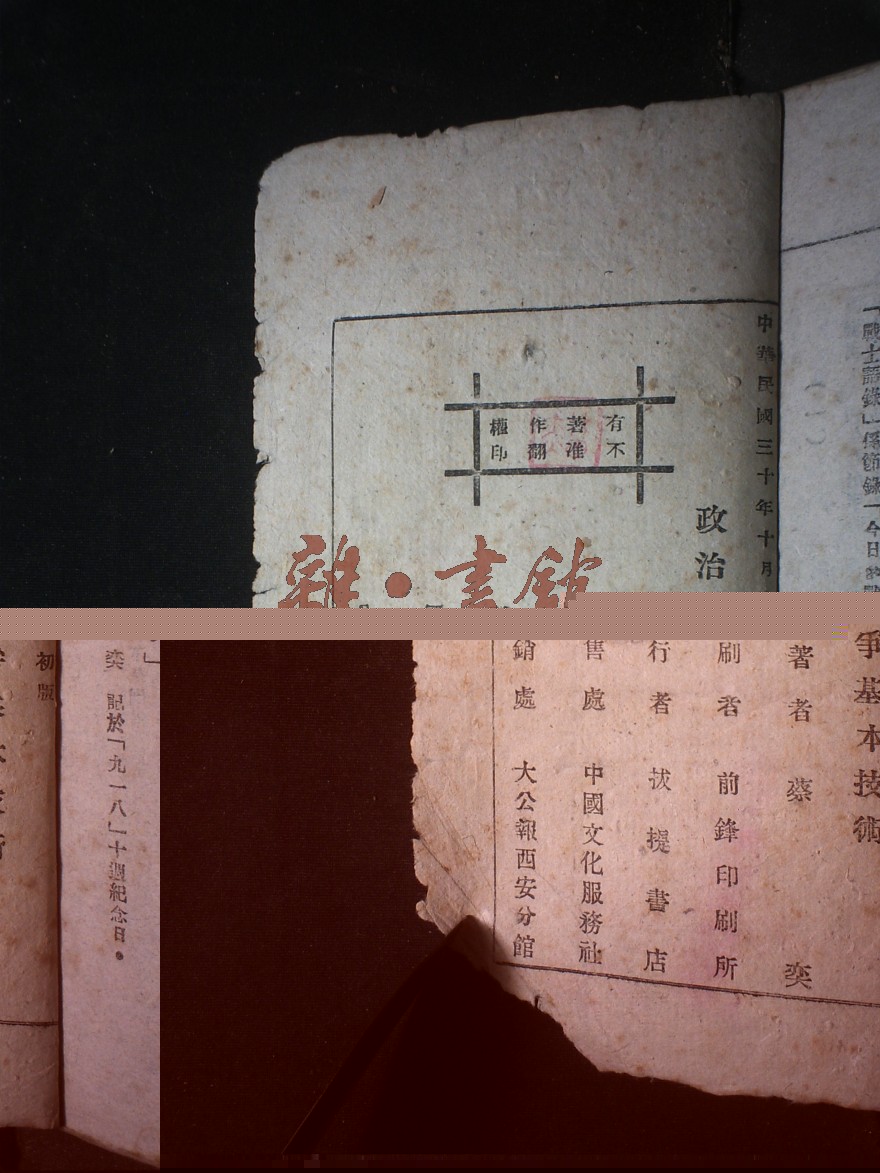 「戰士語錄」係節錄「今日
(一)
中華民國三十年十月
政治
有著作權
不准翻印
雜·書館
爭基本技術
著者 蔡 奕
刷者 前鋒印刷所
行者 拔提書店
售處 中國文化服務社
銷處 大公報西安分館
奕 記於「九一八」十週紀念日。
初版